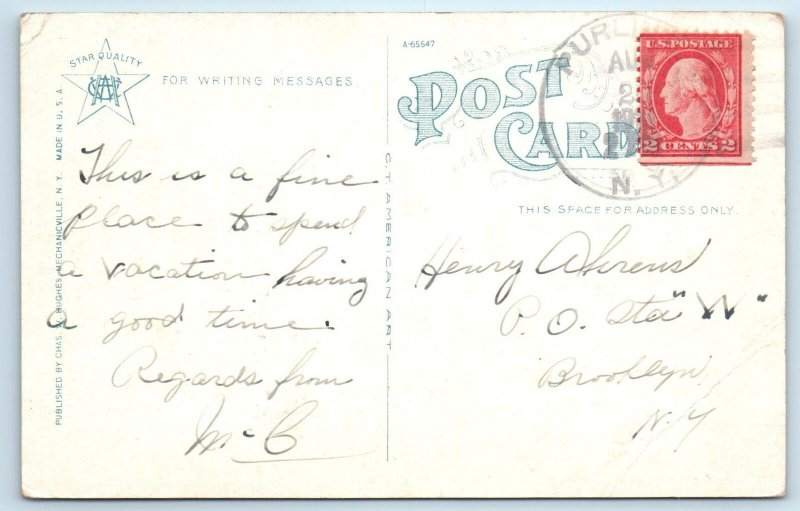 STAR QUALITY
FOR WRITING MESSAGES.
This is a fine
place to spend
a vacation having
a good time.
Regards from
McC
PUBLISHED BY CHAS. W. HUGHES, MECHANICVILLE, N. Y. MADE IN U.S.A.
C.T. AMERICAN ART
A-65547
POST
CARD
THIS SPACE FOR ADDRESS ONLY.
PURLING
AUG
N. Y.
U.S. POSTAGE
2 CENTS 2
Henry Ahrens
P. O. Sta "W"
Brooklyn
N. Y